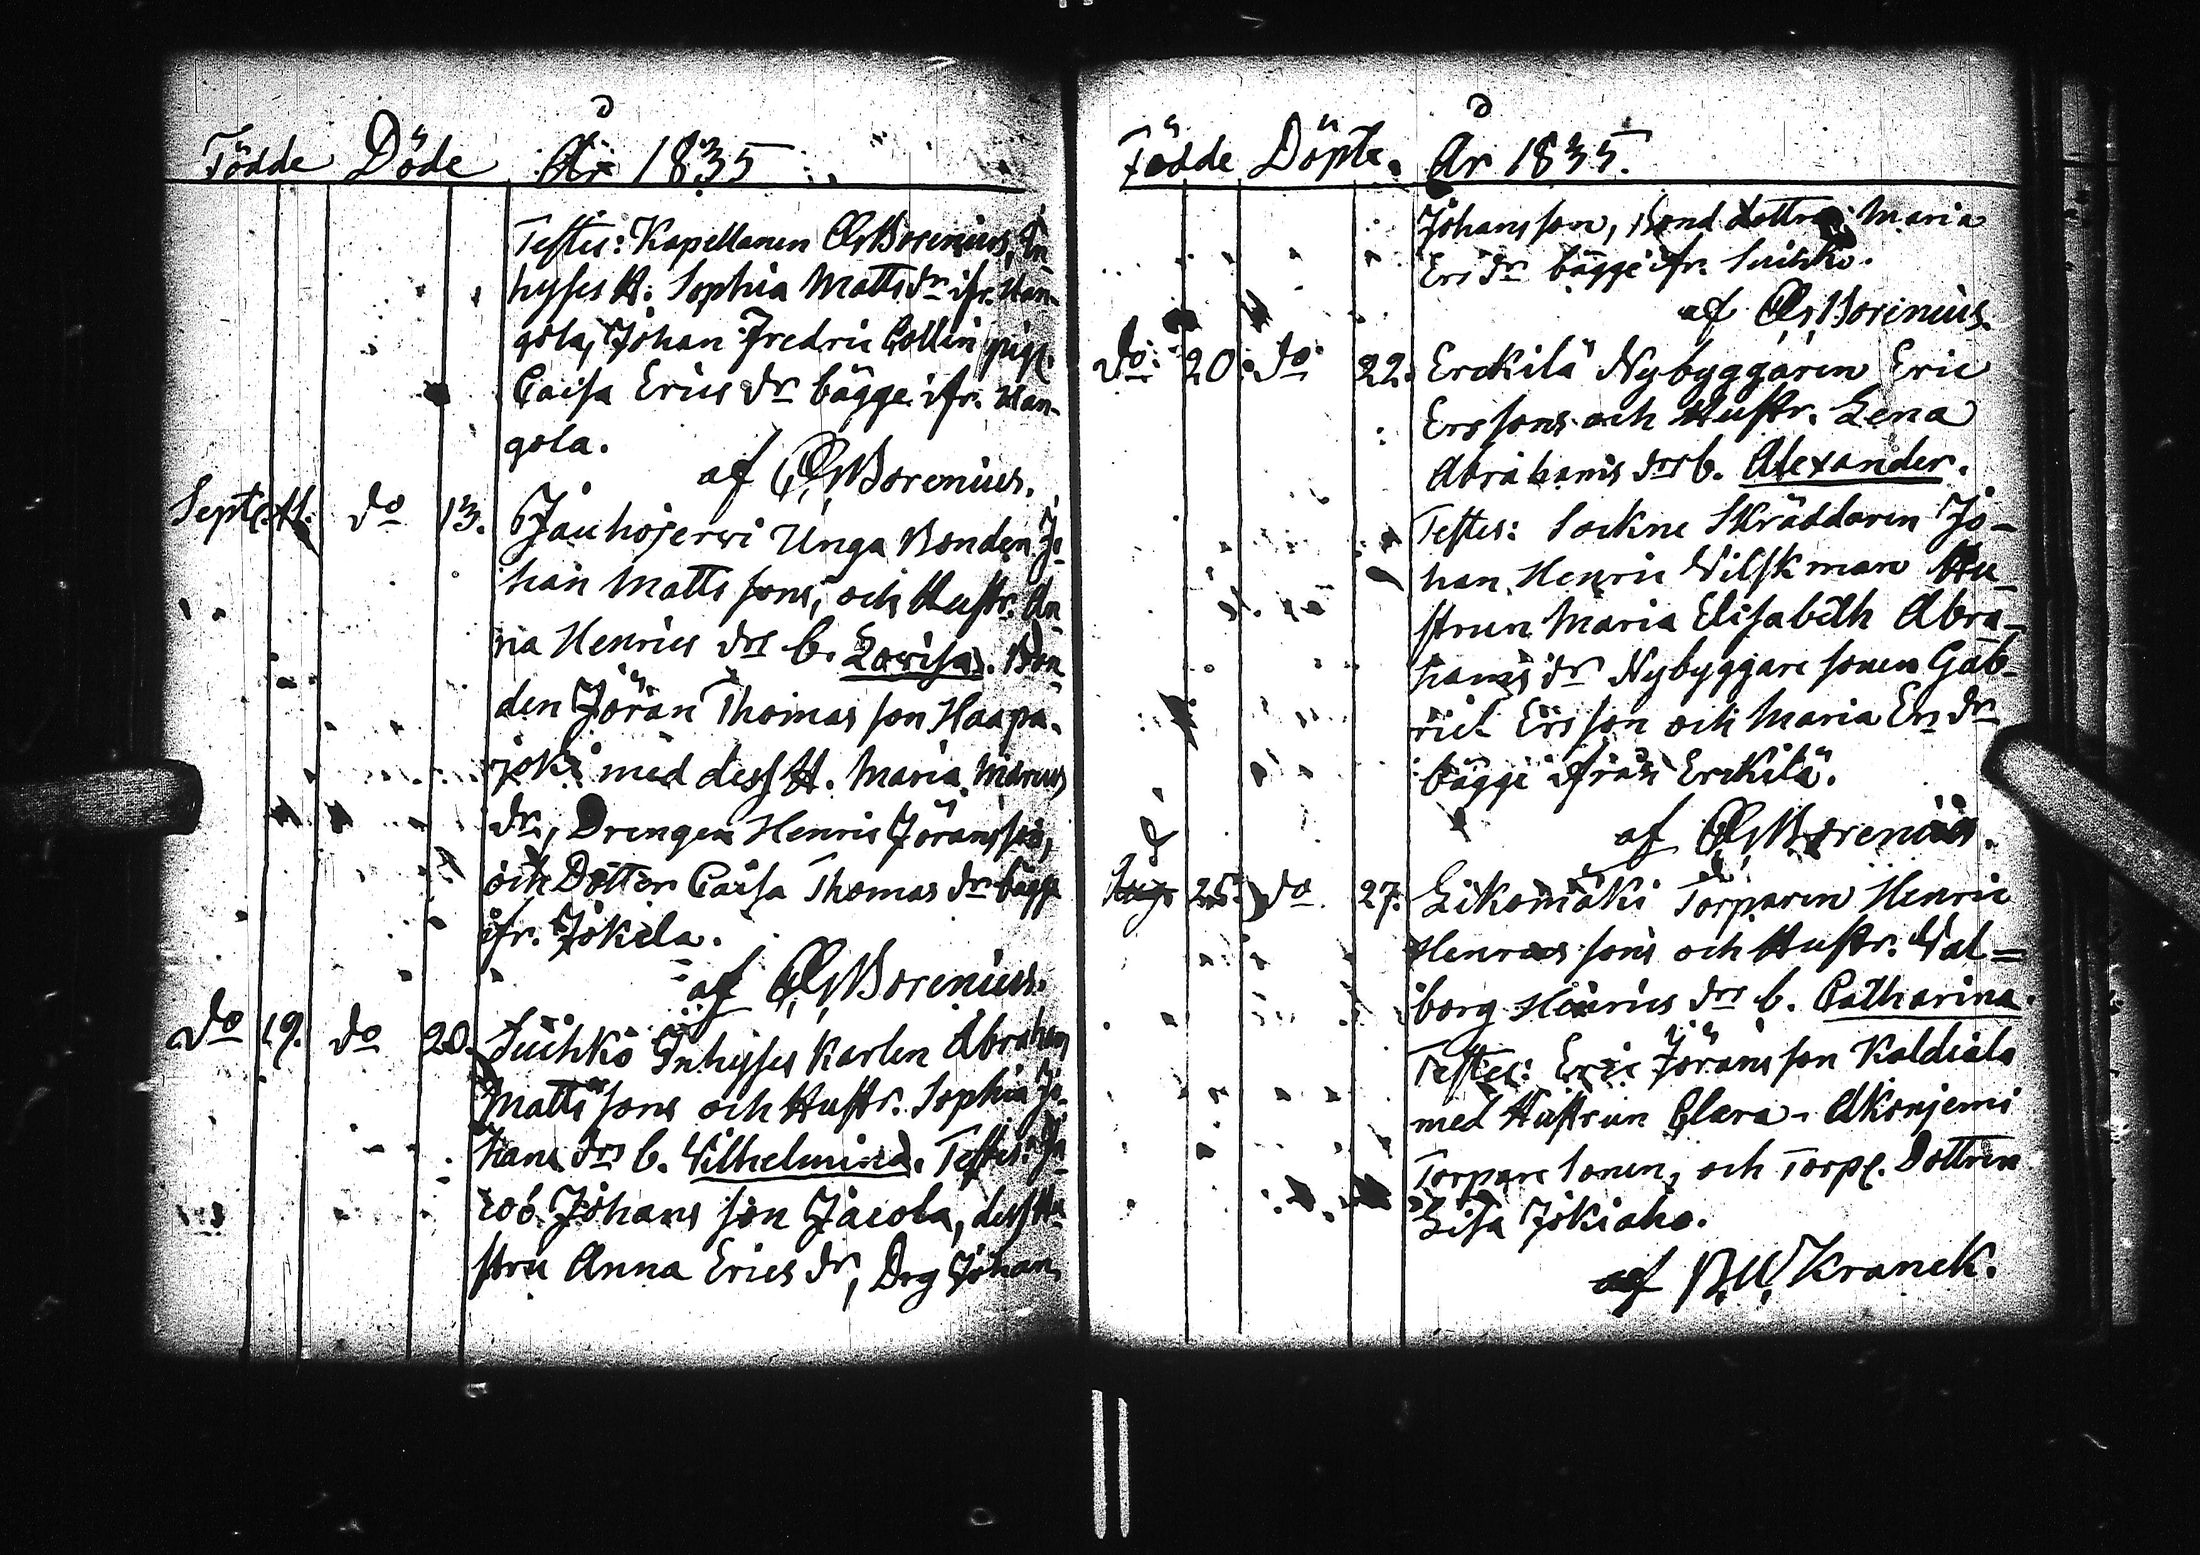 Födde Döde År 1835
Testes: Kapellanen Borenius, In-
hyses H. Sophia Matts dr ifr. Kan-
gola, Johan Fredric Collin pig.
Caisa Erics dr bägge ifr. Kan-
gola.
af Borenius.
Sept. 11. do 13. Jauhojerwi Unga Bonden Jo
han Matts sons, och Hustr. An
na Henrics drs b. Lovisa. Bon
den Jöran Thomas son Haapa-
joki med dess H. Maria Marcus
dr, Drengen Henric Jöransson,
och Dotter Caisa Thomas dr bägge
ifr. Jokela.
af Borenius.
do 19. do 20. Suihko Inhyses Karlen Abraham
Matts sons och Hustr. Sophia Jo-
hans drs b. Wilhelmina. Testes: Ja
cob Johans son Jacola, dess Hu
stru Anna Erics dr, Drg Johan
Födde Döpte. År 1835.
Johans son, Bond dottren Maria
Ers dr bägge ifr. Suihko.
af Borenius.
do 20. do 22. Erckilä Nybyggaren Eric
Ers sons och Hustr. Lena
Abrahams drs b. Alexander.
Testes: Sockne Skräddaren Jo-
han Henric Wilskman Hu-
strun Maria Elisabeth Abra-
hams dr Nybyggare sonen Gab-
riel Ers son och Maria Ers dr
bägge ifrån Erckilä.
af Borenius.
25. do 27. Likomäki Torparen Henric
Henrics sons och Hustr. Wal=
borg Henrics drs b. Catharina.
Testes: Eric Jörans son Kaldiala
med Hustrun Clara - Akonjemi
Torpare Sonen, och Torp. Dottren
Lisa Jokiaho.
af B. W. Kranck.